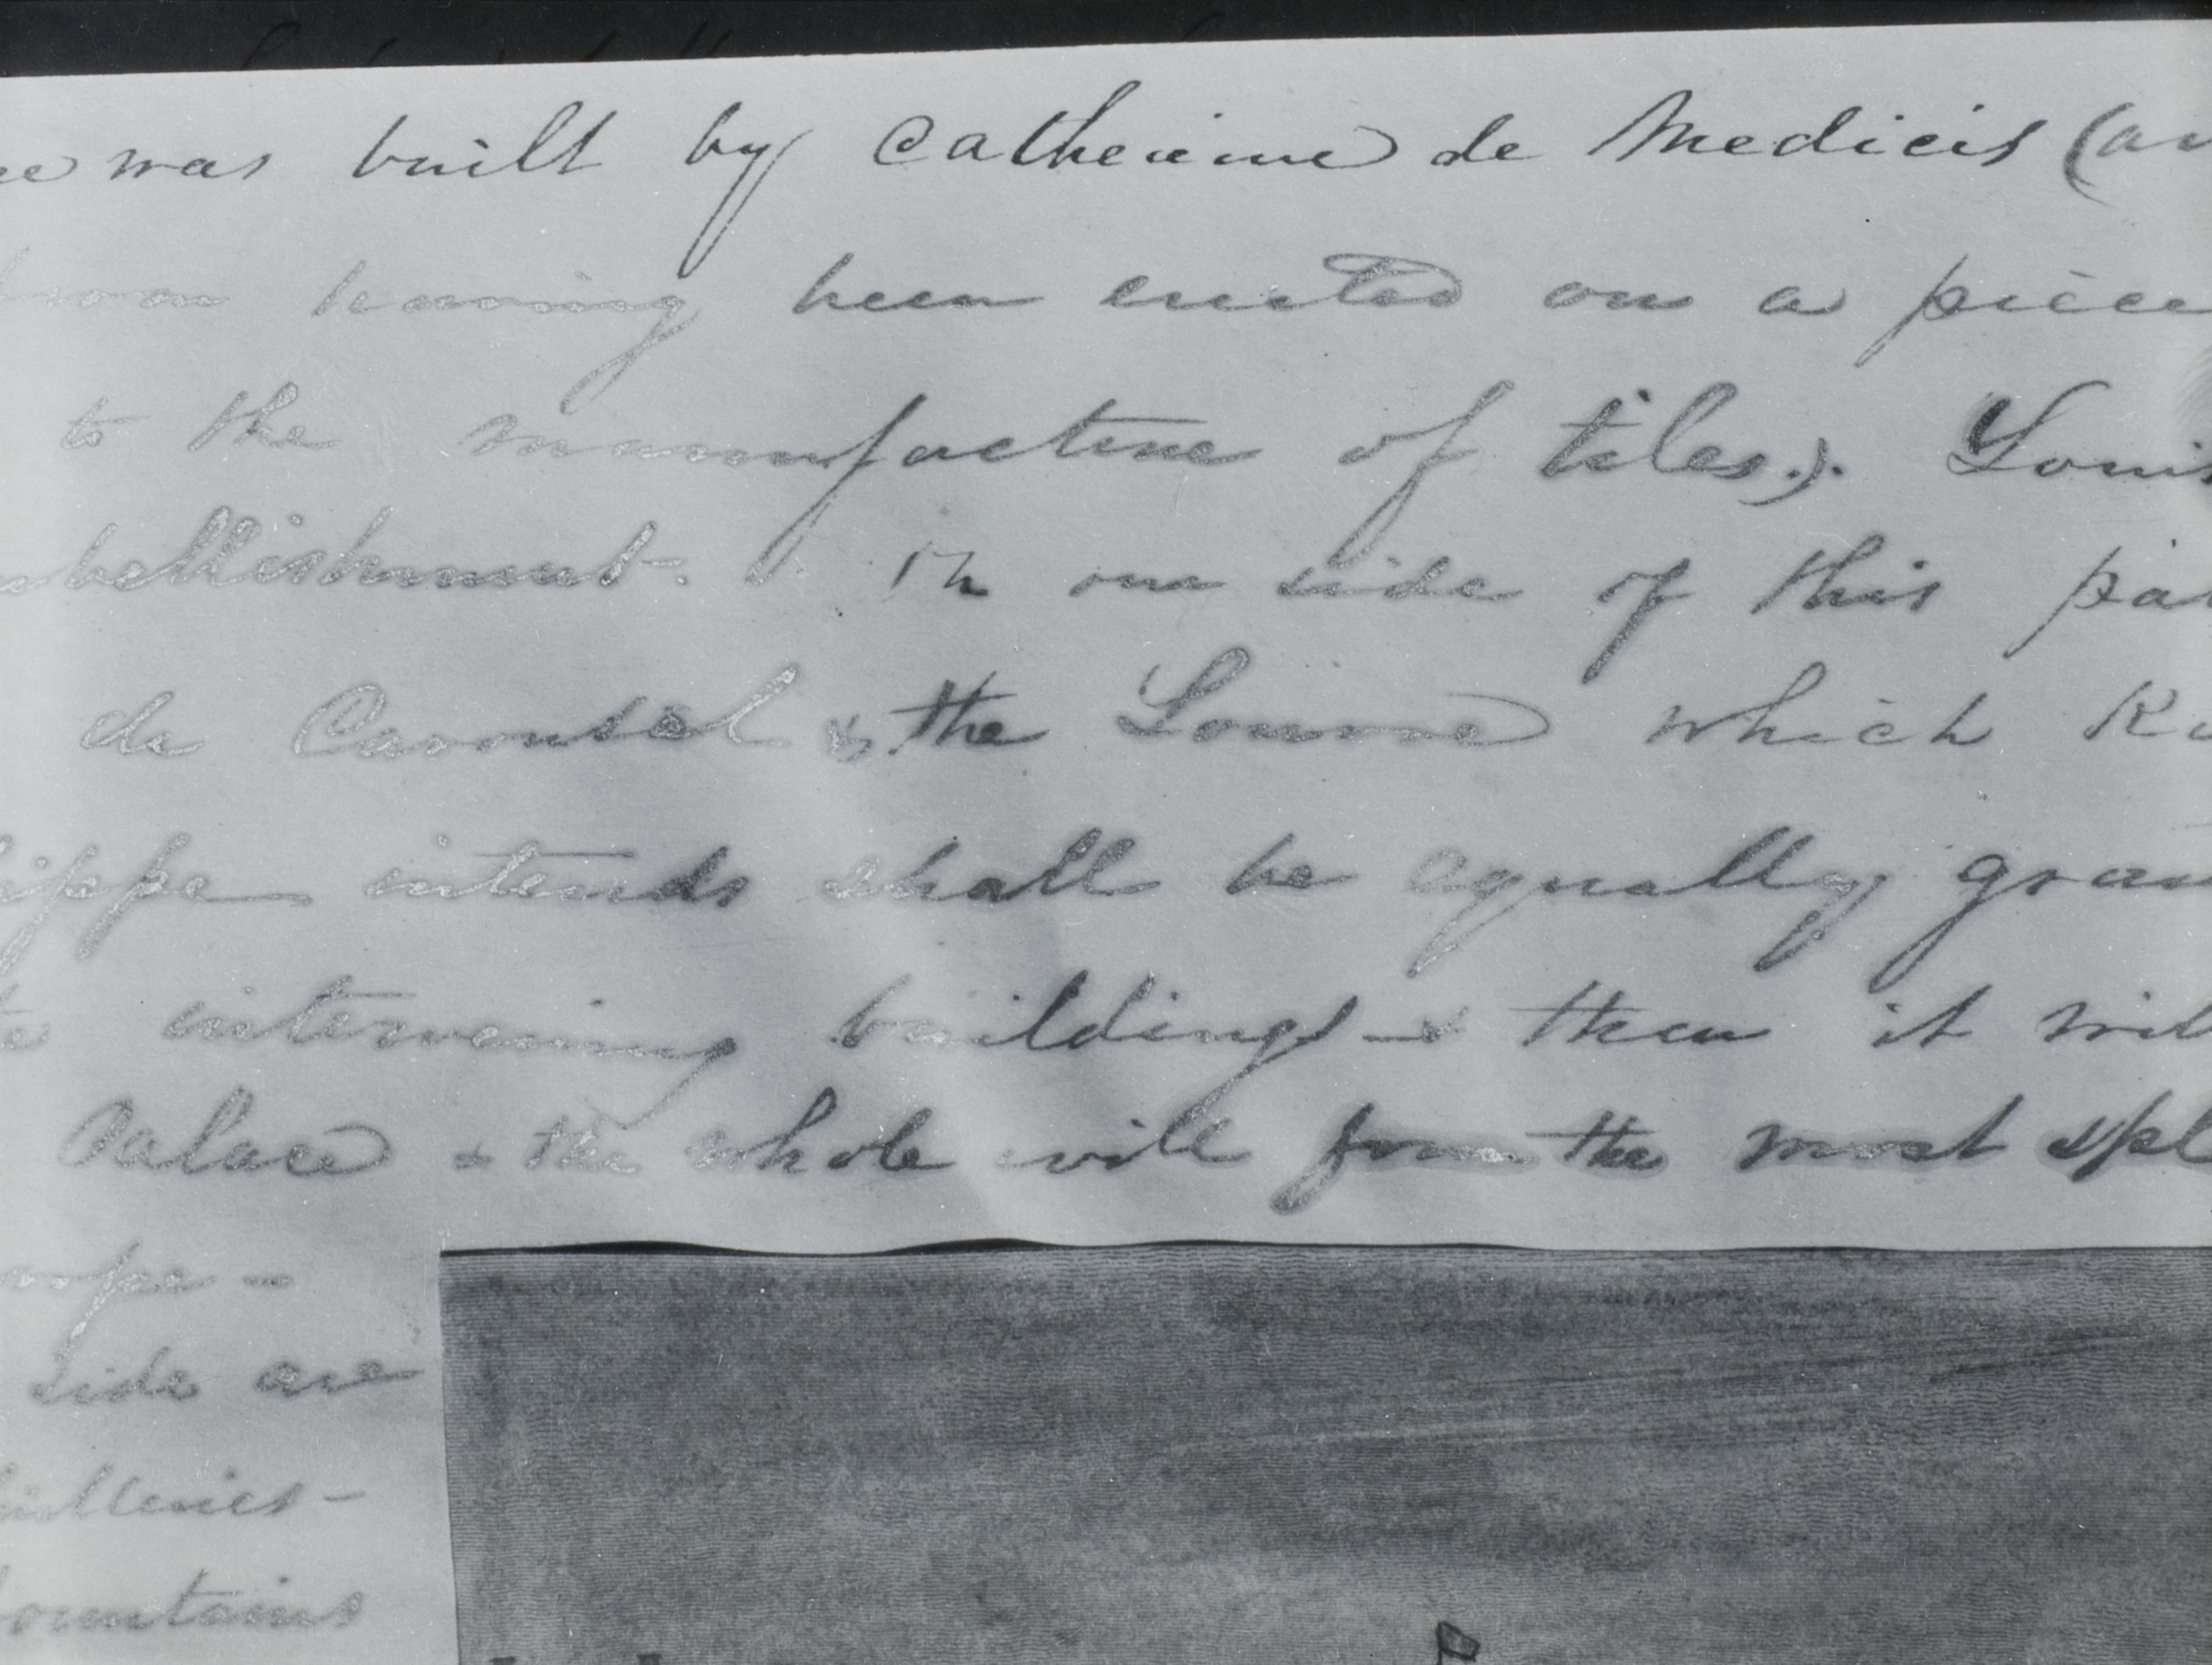 was built by Catherine de Medicis (an
from having been erected on a piece
to the manufacture of tiles.). Louis
bellishment. On one side of this pal
de Carousel & the Louvre which Ki
lippe intends shall be equally gran
intervening buildings & then it wil
Palace & the whole will form the most spl
rope -
side are
uilleries -
ountains